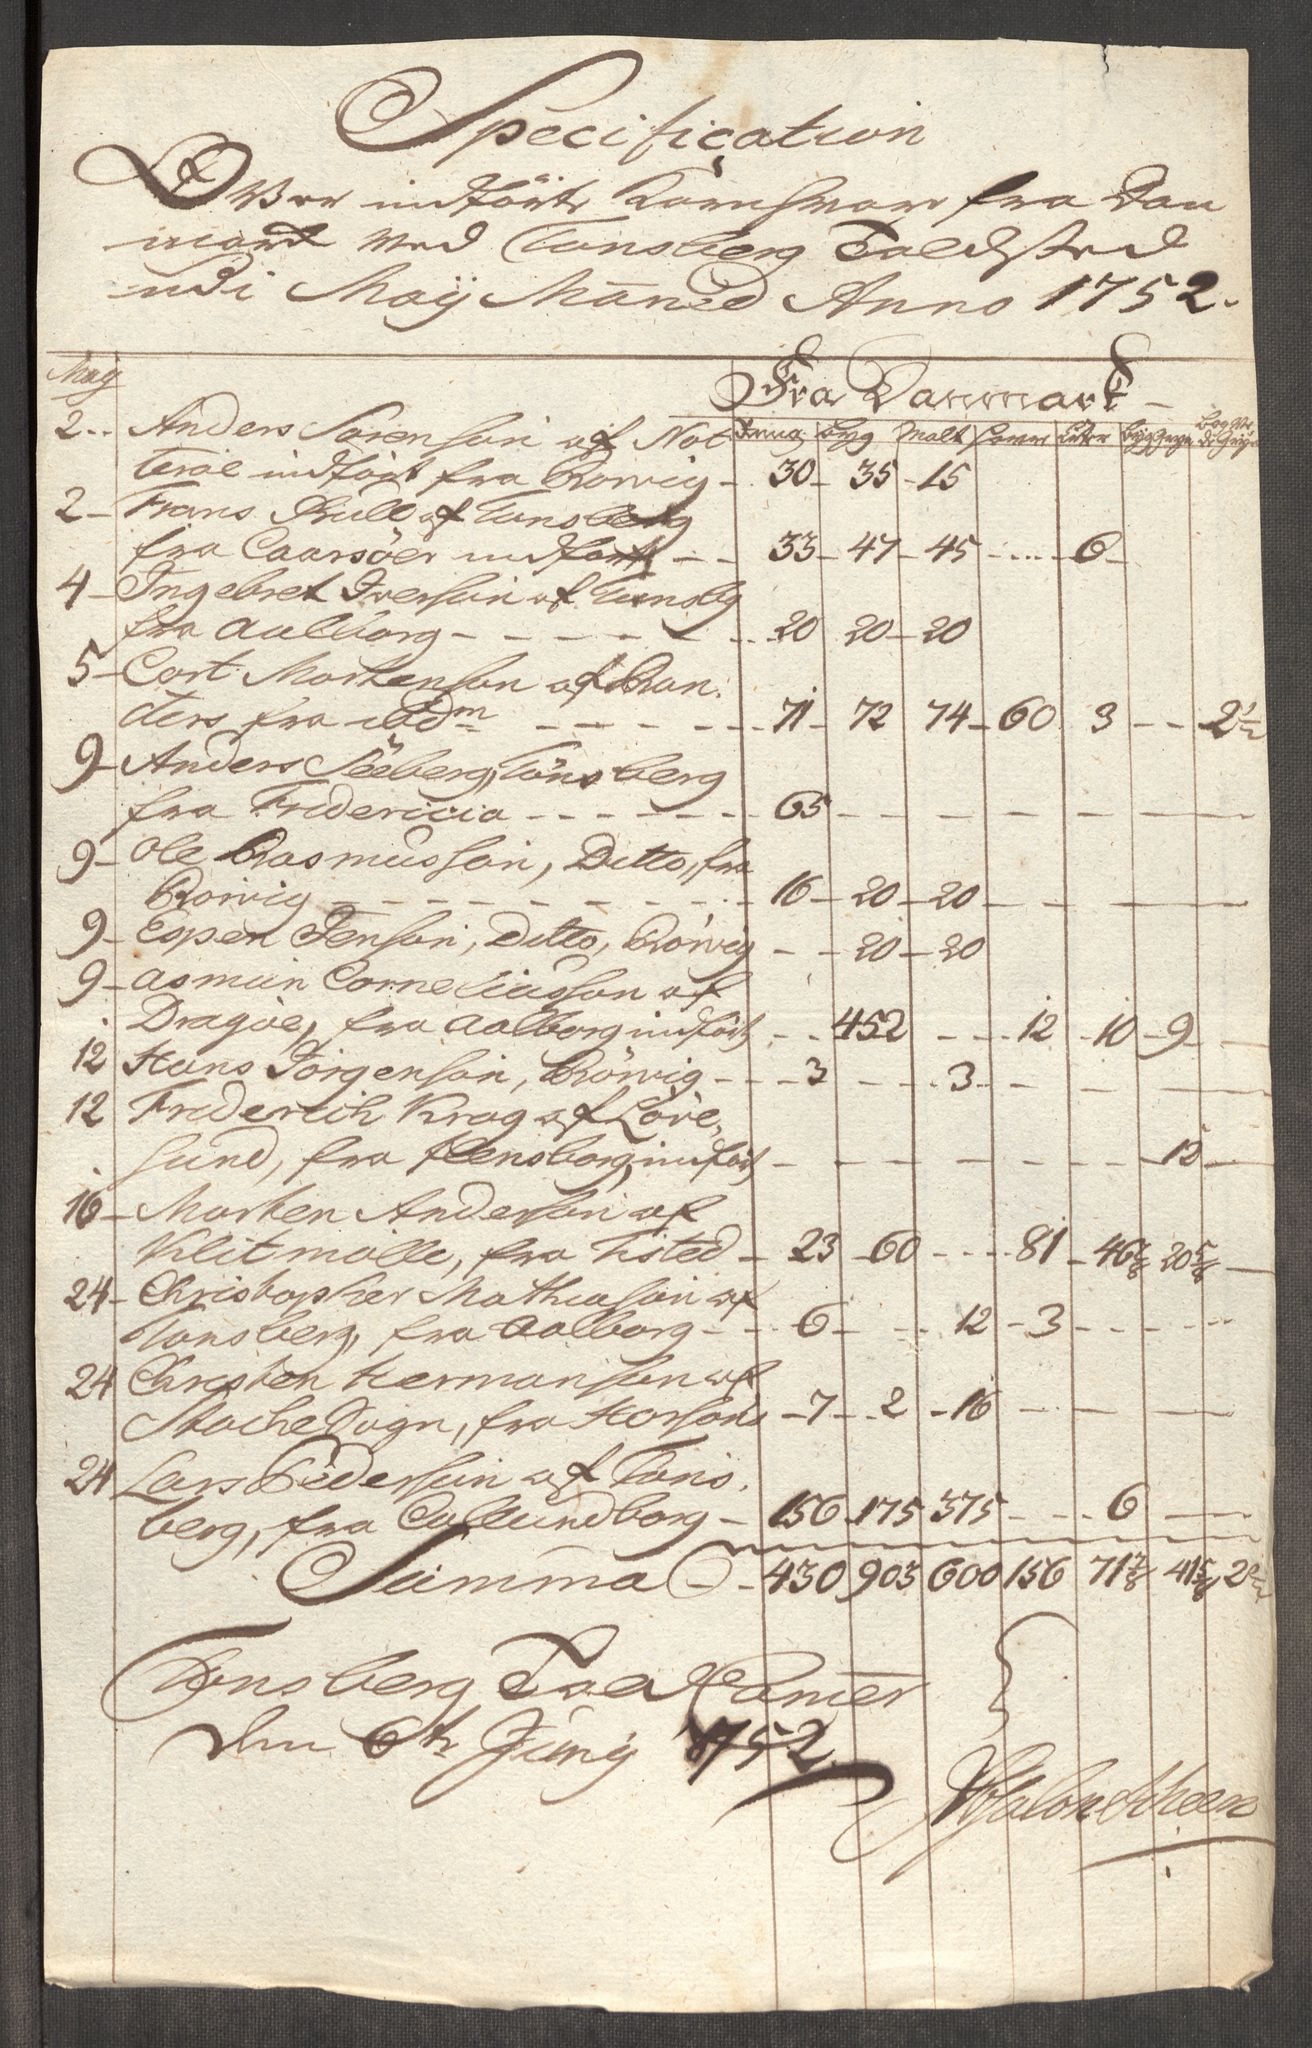 Specification
Over indförte Kornvare fra Dan
march ved Tonsberg Toldsted
udi Maÿ Maned Anno 1752.
May
Fra Danmark
2.. Anders Sörensön af Not Byg Malt Havre
teröe indfört fra Rörvig - 30 - 35 - 15
2 - Frans Krull af Tunsberg
fra Caarsöer indfört - - 33 - 47 - 45 - .... 6 -
4 - Ingebret Iversön af Tunsbg
fra Aalborg - - - - - - 20 20 - 20
5 - Cort Mortensön af Ran
ders fra ibdm - - - - - 71 - 72 74 - 60 3 - - 2½
9 - Anders Seeberg, Tönsberg
fra Fridericia - - - - - - 65 - - - - - -
9 - Ole Rasmussön, Ditto, fra
Rörvig - - - - - - - - 16 - 20 - 20 - - - -
9 - Espen Jensön, Ditto, Rörvig - - 20 - 20
9 - Asmun Corneliussön af
Dragöe, fra Aalborg indfört - - 452 - - - 12 - 10 - 9 -
12 Hans Jörgensön, Rörvig - - - 3 - - - 3 - - - -
12 Friderich Krag af Löve,
sund, fra Flensborg, indfört - - - - - - - - 12 -
16 - Morten Andersön af
Klitmölle, fra Tisted - 23 - 60 - - - 81 - 46⅞ 20⅝ -
24 - Christopher Mathiesön af
Tonsberg, fra Aalborg - - - 6 - - - 12 - 3 - - - -
24 Christen Hermansön af
Stoche Sogn, fra Horsens - 7 - 2 - 16 - - - -
24 Lars Pedersön af Tons,
berg, fra Callundborg - 156 - 175 375 - - - 6 - -
Summa - - 430 903 600 156 71⅞ 41⅝ 2½
Tonsberg Told Camer
den 6te Junÿ 1752.